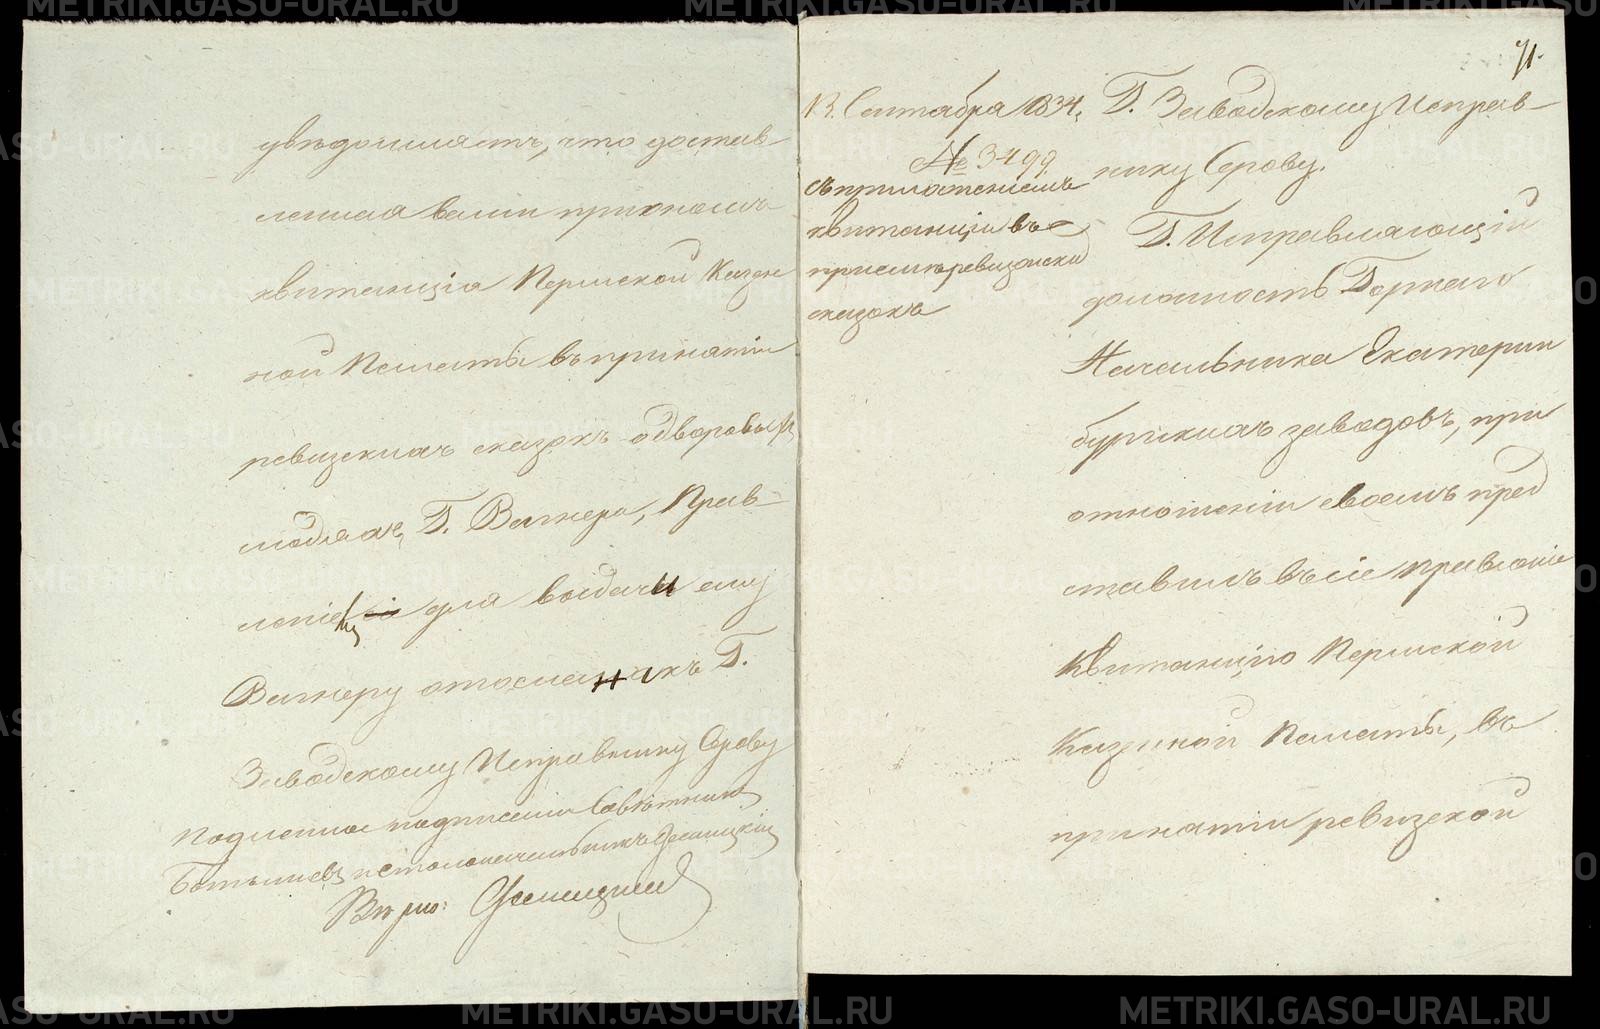 увѣдомляетъ, что достав-
ленная вами при ономъ
квитанція Пермской Казен
ной Палаты въ принятіи
ревизскихъ сказокъ о дворовыхъ
людяхъ, Г. Вагнера, Прав-
леніемъ для выдачи ему
Вагнеру отослана къ Г.
Заводскому Исправнику Серову
Подлинное подписали Совѣтникъ
и Столоначальникъ
Вѣрно:
71.
13. Сентября 1834,
№ 3499.
съ приложеніемъ
квитанціи въ
пріемѣ ревизскихъ
сказокъ
Г. Заводскому Исправ-
нику Серову.
Г. Исправляющій
должность Горнаго
Начальника Екатерин
бургскихъ заводовъ, при
отношеніи своемъ пред
ставилъ въ сіе правленіе
Квитанцію Пермской
Казенной Палаты, въ
принятіи ревизской
METRIKI.GASO-URAL.RU